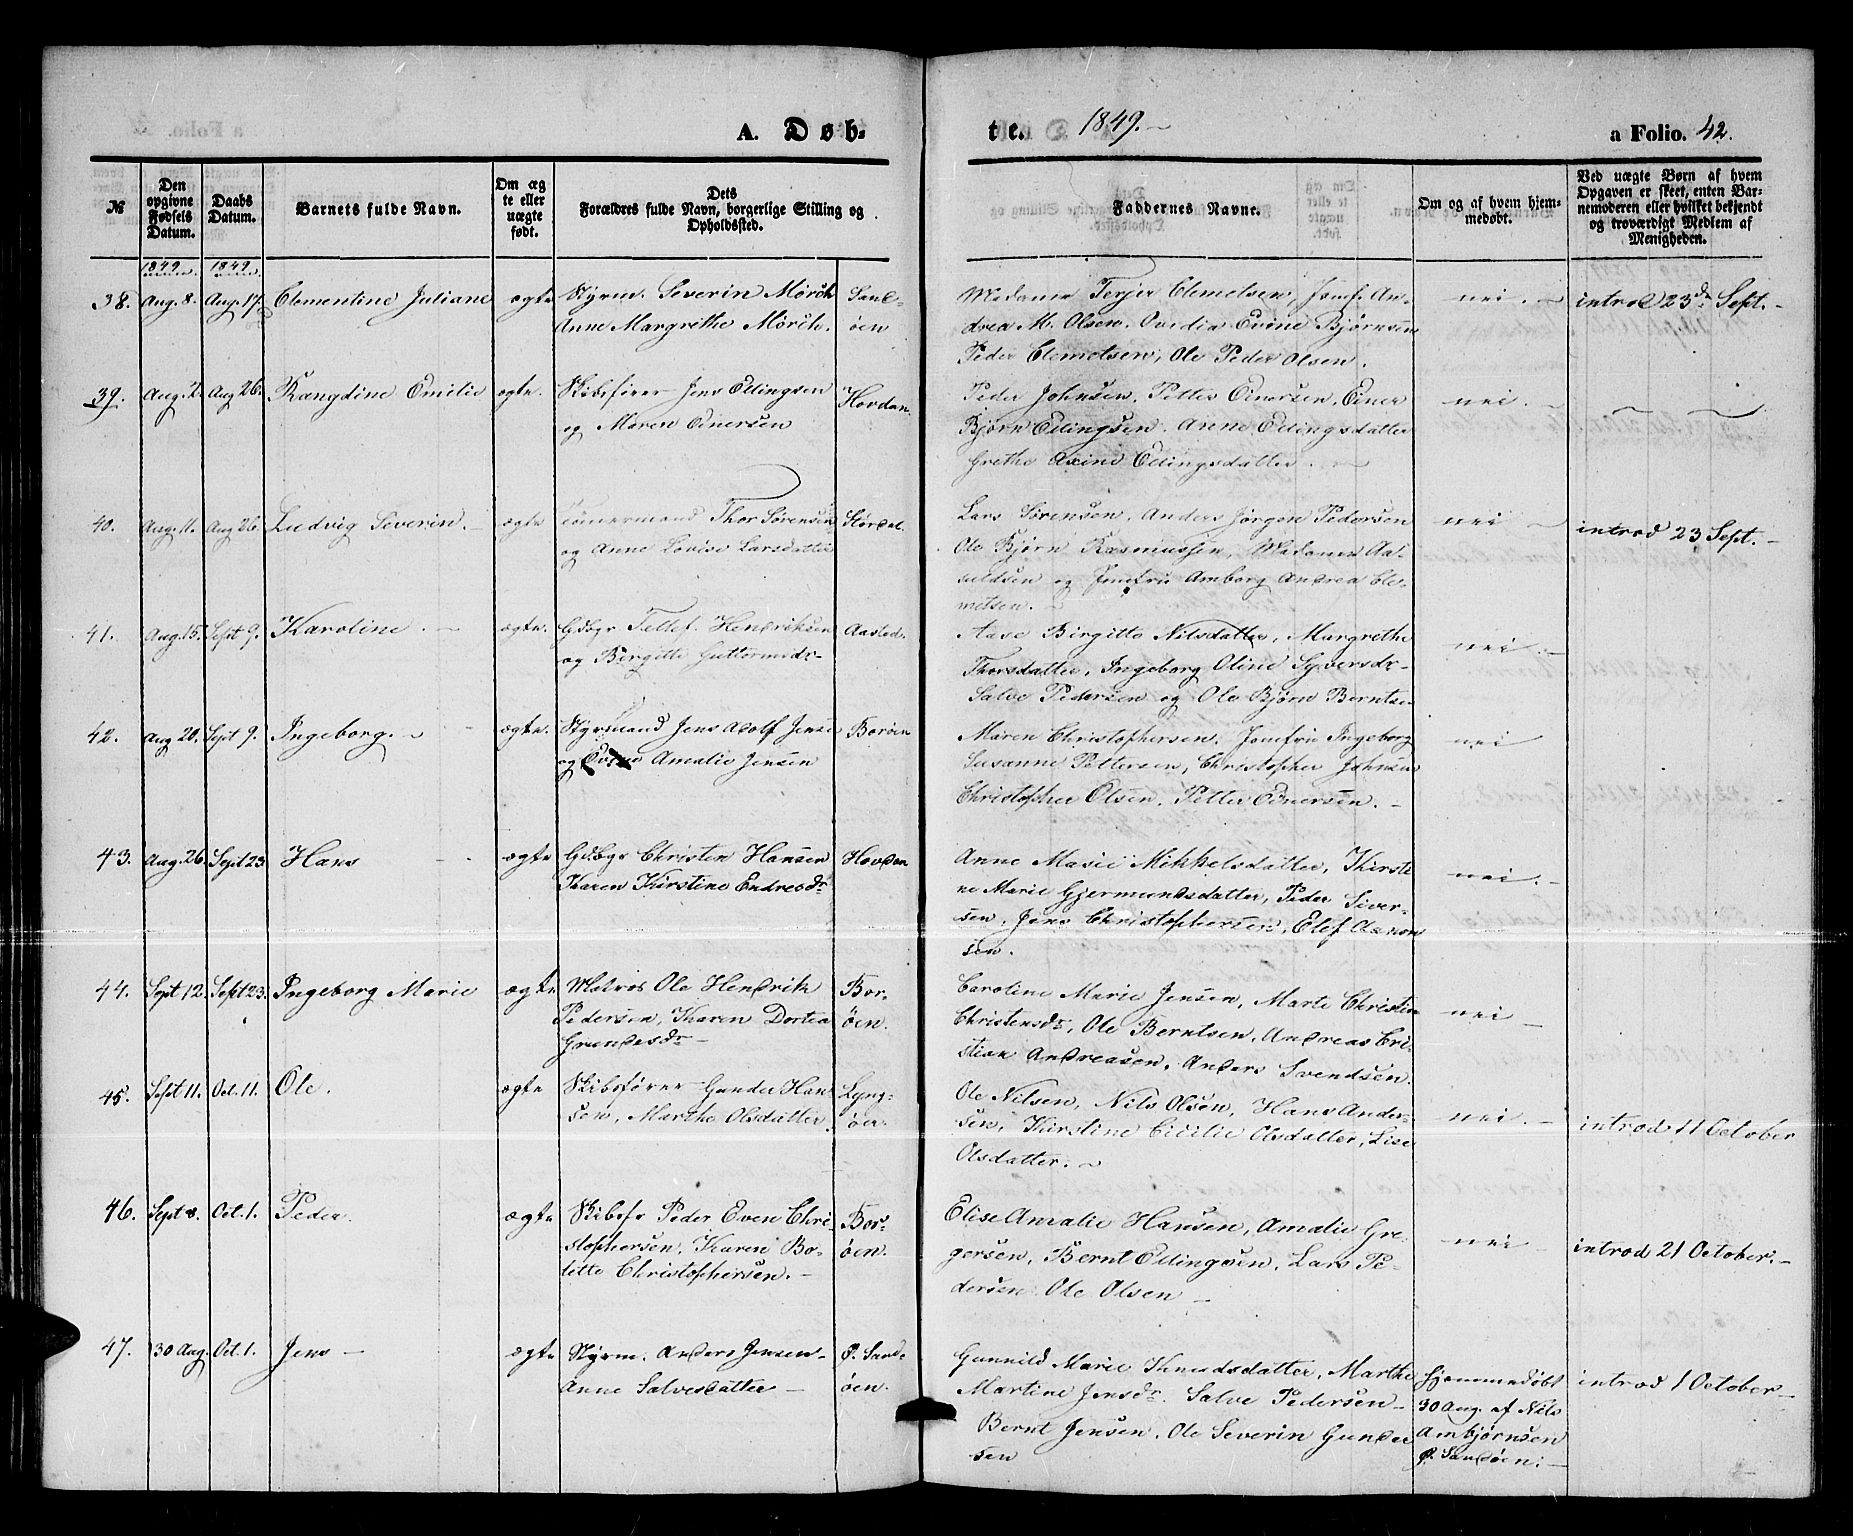 A. Døb-
te. 1849.
a Folio. 42.
№
Den opgivne Fødsels Datum.
Daabs Datum.
Barnets fulde Navn.
Om ægte eller uægte født.
Dets Forældres fulde Navn, borgerlige Stilling og Opholdssted.
Faddernes Navne.
Om og af hvem hjemmedøbt.
Ved uægte Børn af hvem Opgaven er skeet, enten Barnemoderen eller hvilket bekjendt og troværdigt Medlem af Menigheden.
1849. 1849.
38. Aug. 8. Aug. 17. Clementine Juliane ægte Styrm. Severin Mörch Sand-
Anne Margrethe Mörch. öen
Madame Terjer Clemetsen, Jomf. An-
drea M. Olsen. Ovidia Evine Björnsen
Peder Clemetsen, Ole Peder Olsen.
nei. introd 23de Sept.
39. Aug. 2. Aug 26. Rangdine Emilie ægte. Skibsförer Jens Edingsen Hovdan.
og Maren Einersen
Peder Johnsen, Petter Einersen, Einer
Björn Edingsen. Anne Edingsdatter
Grethe Axine Edingsdatter.
nei.
40. Aug. 11. Aug 26. Ludvig Severin. ægte Tömermand Thor Sörensen Stördal.
og Anne Lovise Larsdatter
Lars Sörensen, Anders Jörgen Pedersen
Ole Björn Rasmussen, Madame Aa-
suldsen og Jomfru Amborg Andrea Cle-
metsen.
nei introd 23 Sept.
41. Aug. 15. Sept 9. Karoline ægte. Gdbgr Tellef Hendriksen Aasted.
og Birgitte Guttormsdr
Aase Birgitte Nilsdatter, Margrethe
Thorsdatter, Ingeborg Oline Syversdr
Salve Pedersen og Ole Björn Berntsen
nei.
42. Aug 20. Sept 9. Ingeborg. ægte. Styrmand Jens Adolf Jensen Boröen
og Amalie Jensen
Maren Christophersen. Jomfru Ingeborg
Susanne Pettersen, Christopher Johnsen
Christopher Olsen. Petter Einersen.
nei
43. Aug. 26. Sept 23 Hans ægte Gdbgr Christen Hansen Hovden
Karen Kirstine Endresdr
Anne Marie Mikkelsdatter, Kirsti-
ne Marie Gjermundsdatter, Peder Siver-
sen, Jens Christophersen, Elef Aanon
sen.
nei.
44. Sept 12. Sept 23. Ingeborg Marie ægte Matros Ole Hendrik Bor-
Pedersen, Karen Dortea öen.
Grundesdr
Caroline Marie Jensen, Marte Christine
Christensdr, Ole Berntsen, Andreas Cri-
stian Andreasen, Anders Svendsen.
nei
45. Sept 11. Oct. 11. Ole. ægte Skibsförer Gunder Han- Lyng-
sen, Marthe Olsdatter. öer.
Ole Nilsen, Nils Olsen, Hans Ander-
sen, Kirstine Cicilie Olsdatter, Lise
Olsdatter.
nei. introd 11 October
46. Sept 8. Oct. 1. Peder. ægte Skibsfr Peder Even Chri- Bor-
stophersen, Karen Bo- öen.
lette Christophersen.
Elise Amalie Hansen, Amalie Gre-
gersen, Bernt Edingsen, Lars Pe-
dersen. Ole Olsen
nei introd 21 October.
47. 30 Aug. Oct. 1. Jens ægte Styrm. Anders Jensen Ö. Sand-
Anne Salvesdatter öen.
Gunnild Marie Knudsdatter, Marthe
Martine Jensdr. Salve Pedersen
Bernt Jensen. Ole Severin Gunder
sen
hjemmedöbt
30 Aug. af Nils
Ambjörnsen
Ö. Sandöen.
introd 1 October